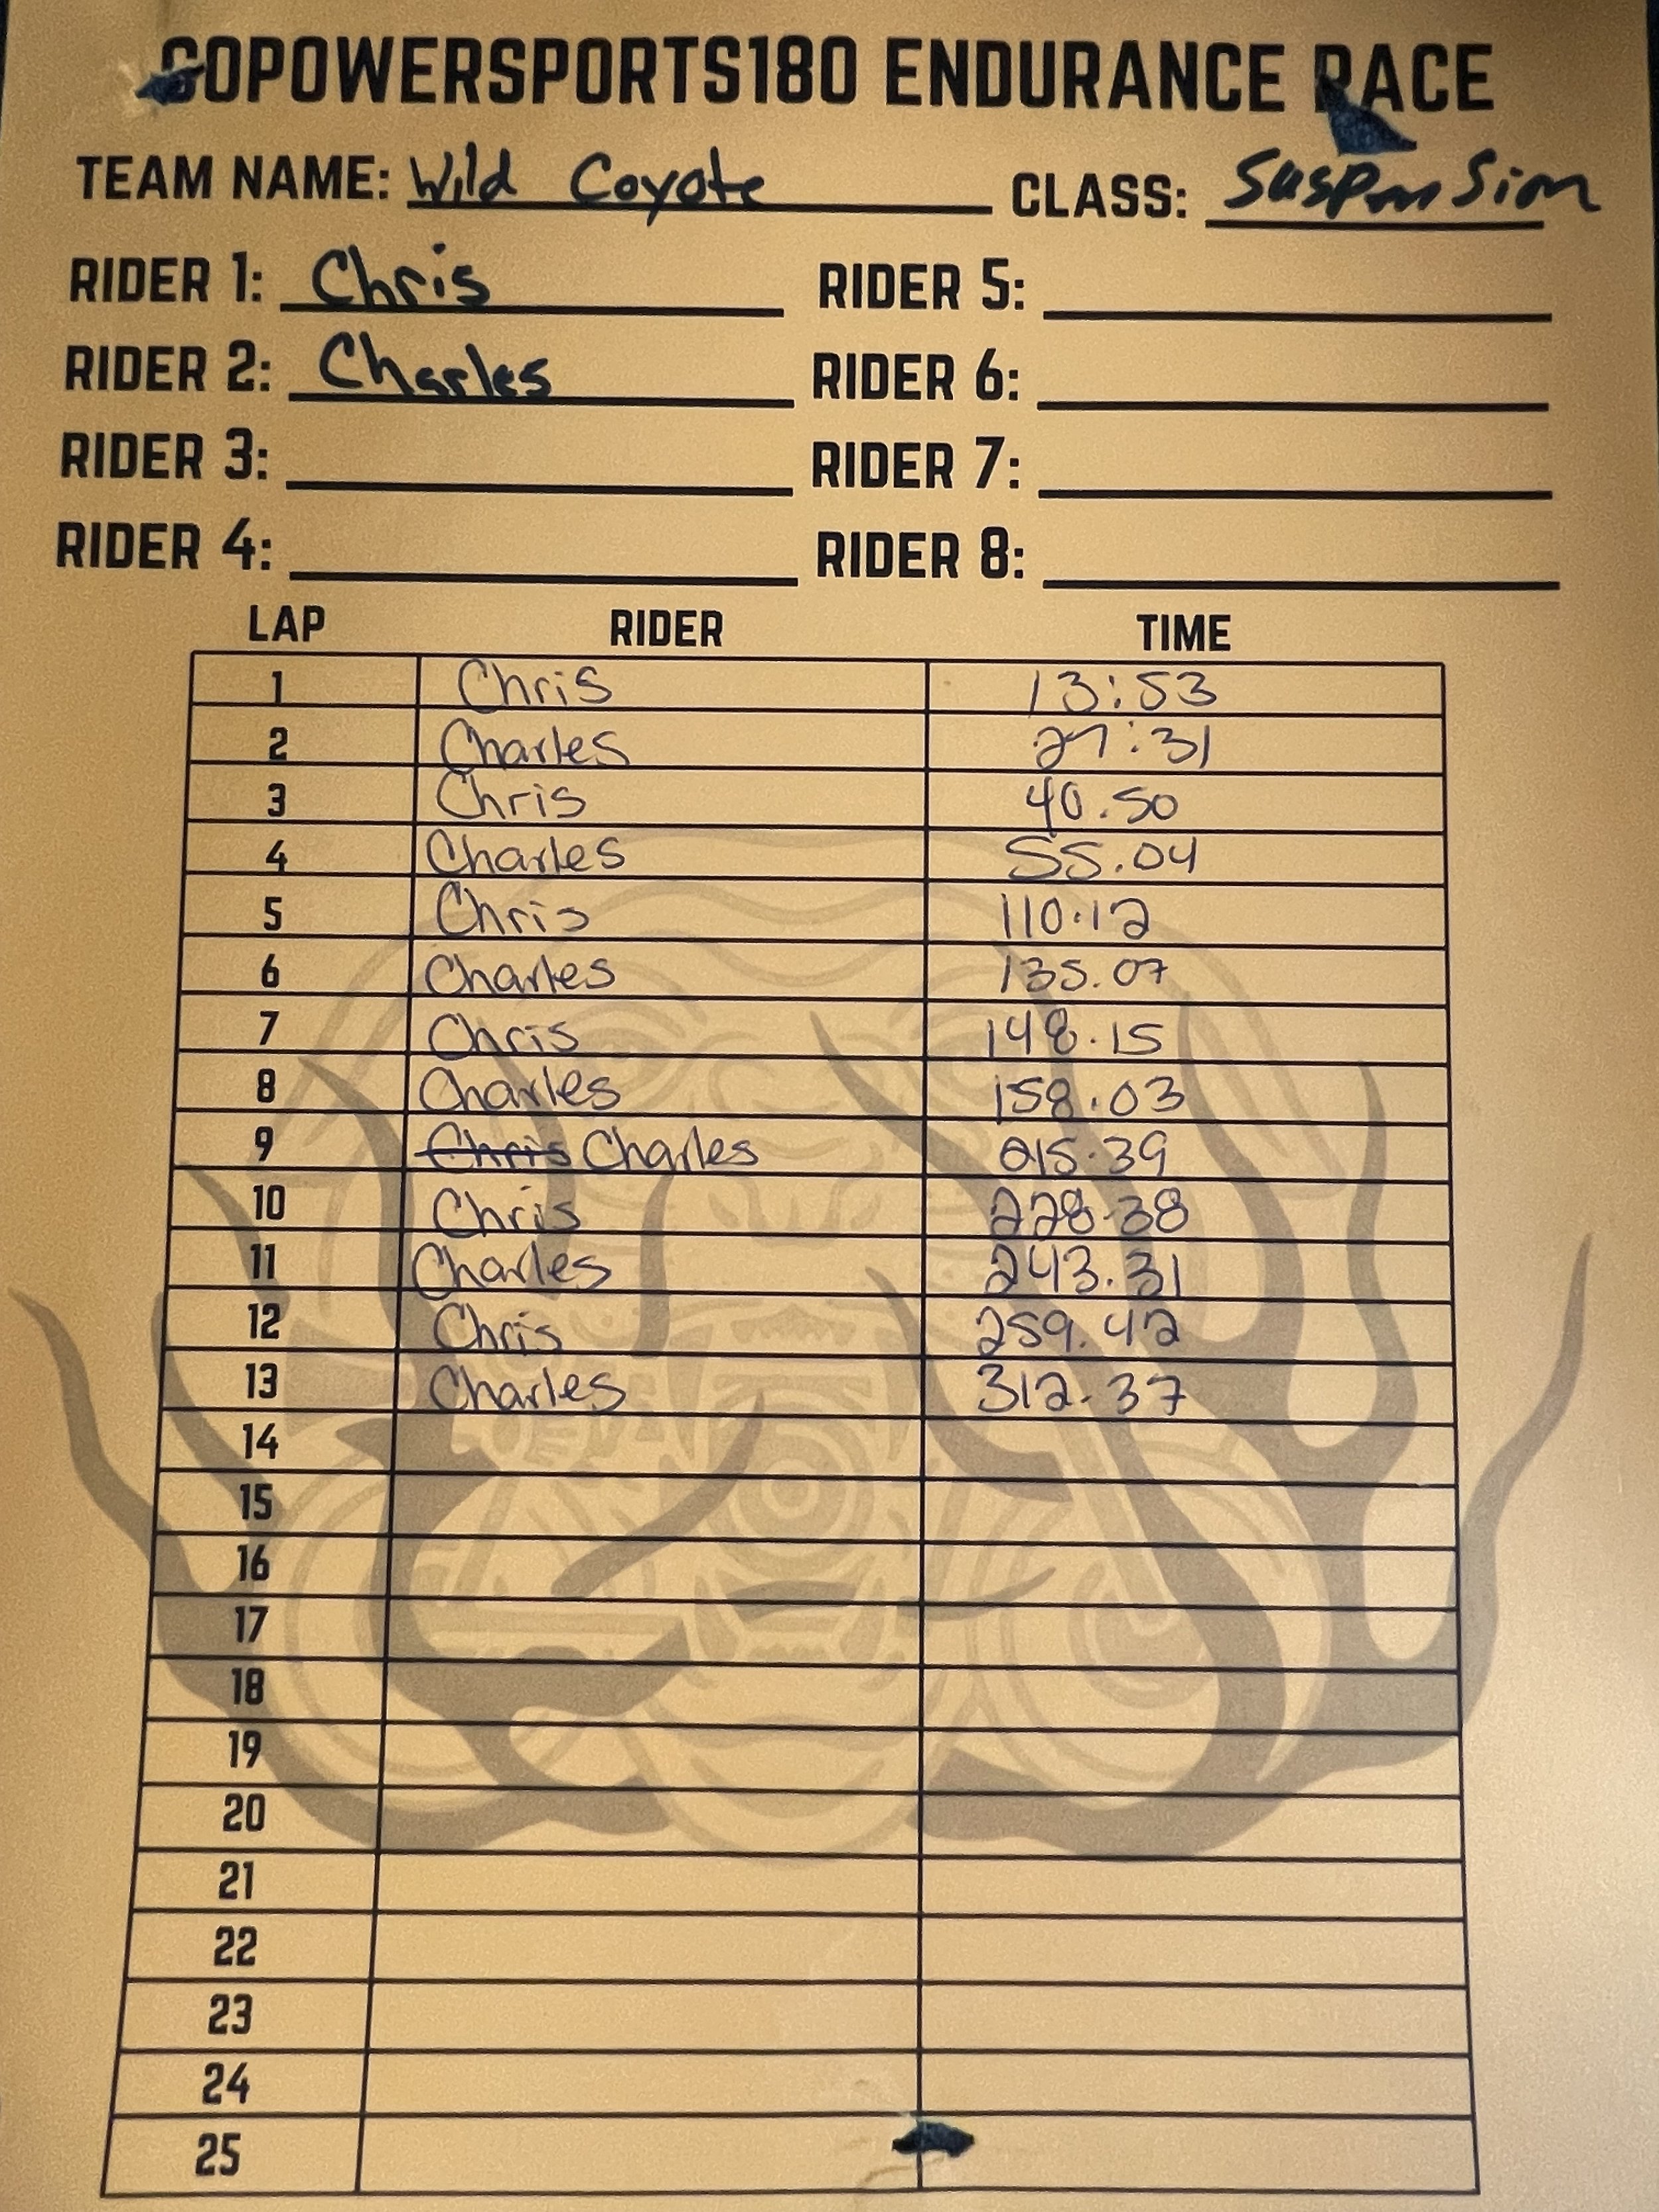 GOPOWERSPORTS180 ENDURANCE RACE
TEAM NAME: Wild Coyote CLASS: Suspension
RIDER 1: Chris RIDER 5:
RIDER 2: Charles RIDER 6:
RIDER 3: RIDER 7:
RIDER 4: RIDER 8:
LAP RIDER TIME
1 Chris 13:53
2 Charles 27:31
3 Chris 40.50
4 Charles 55.04
5 Chris 110.12
6 Charles 135.07
7 Chris 148.15
8 Charles 158.03
9 Chris Charles 215.39
10 Chris 228.38
11 Charles 243.31
12 Chris 259.42
13 Charles 312.37
14
15
16
17
18
19
20
21
22
23
24
25